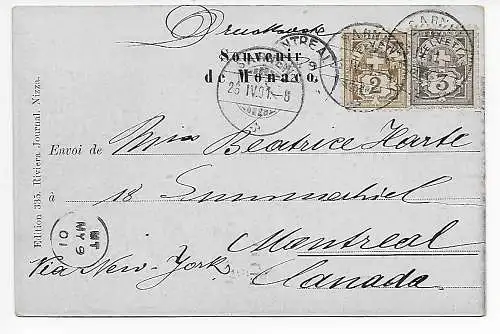 Drucksache
Souvenir
de Monaco.
MONTREAL
26 IV.01.-8
SARNEN
HELVETIA
2
SARNEN
HELVETIA
3
Envoi de Miss Beatrice Harte
à 18 Summerhiel
Montreal
Via New-York. Canada.
MY 9
01
Edition 335. Riviera Journal, Nizza.